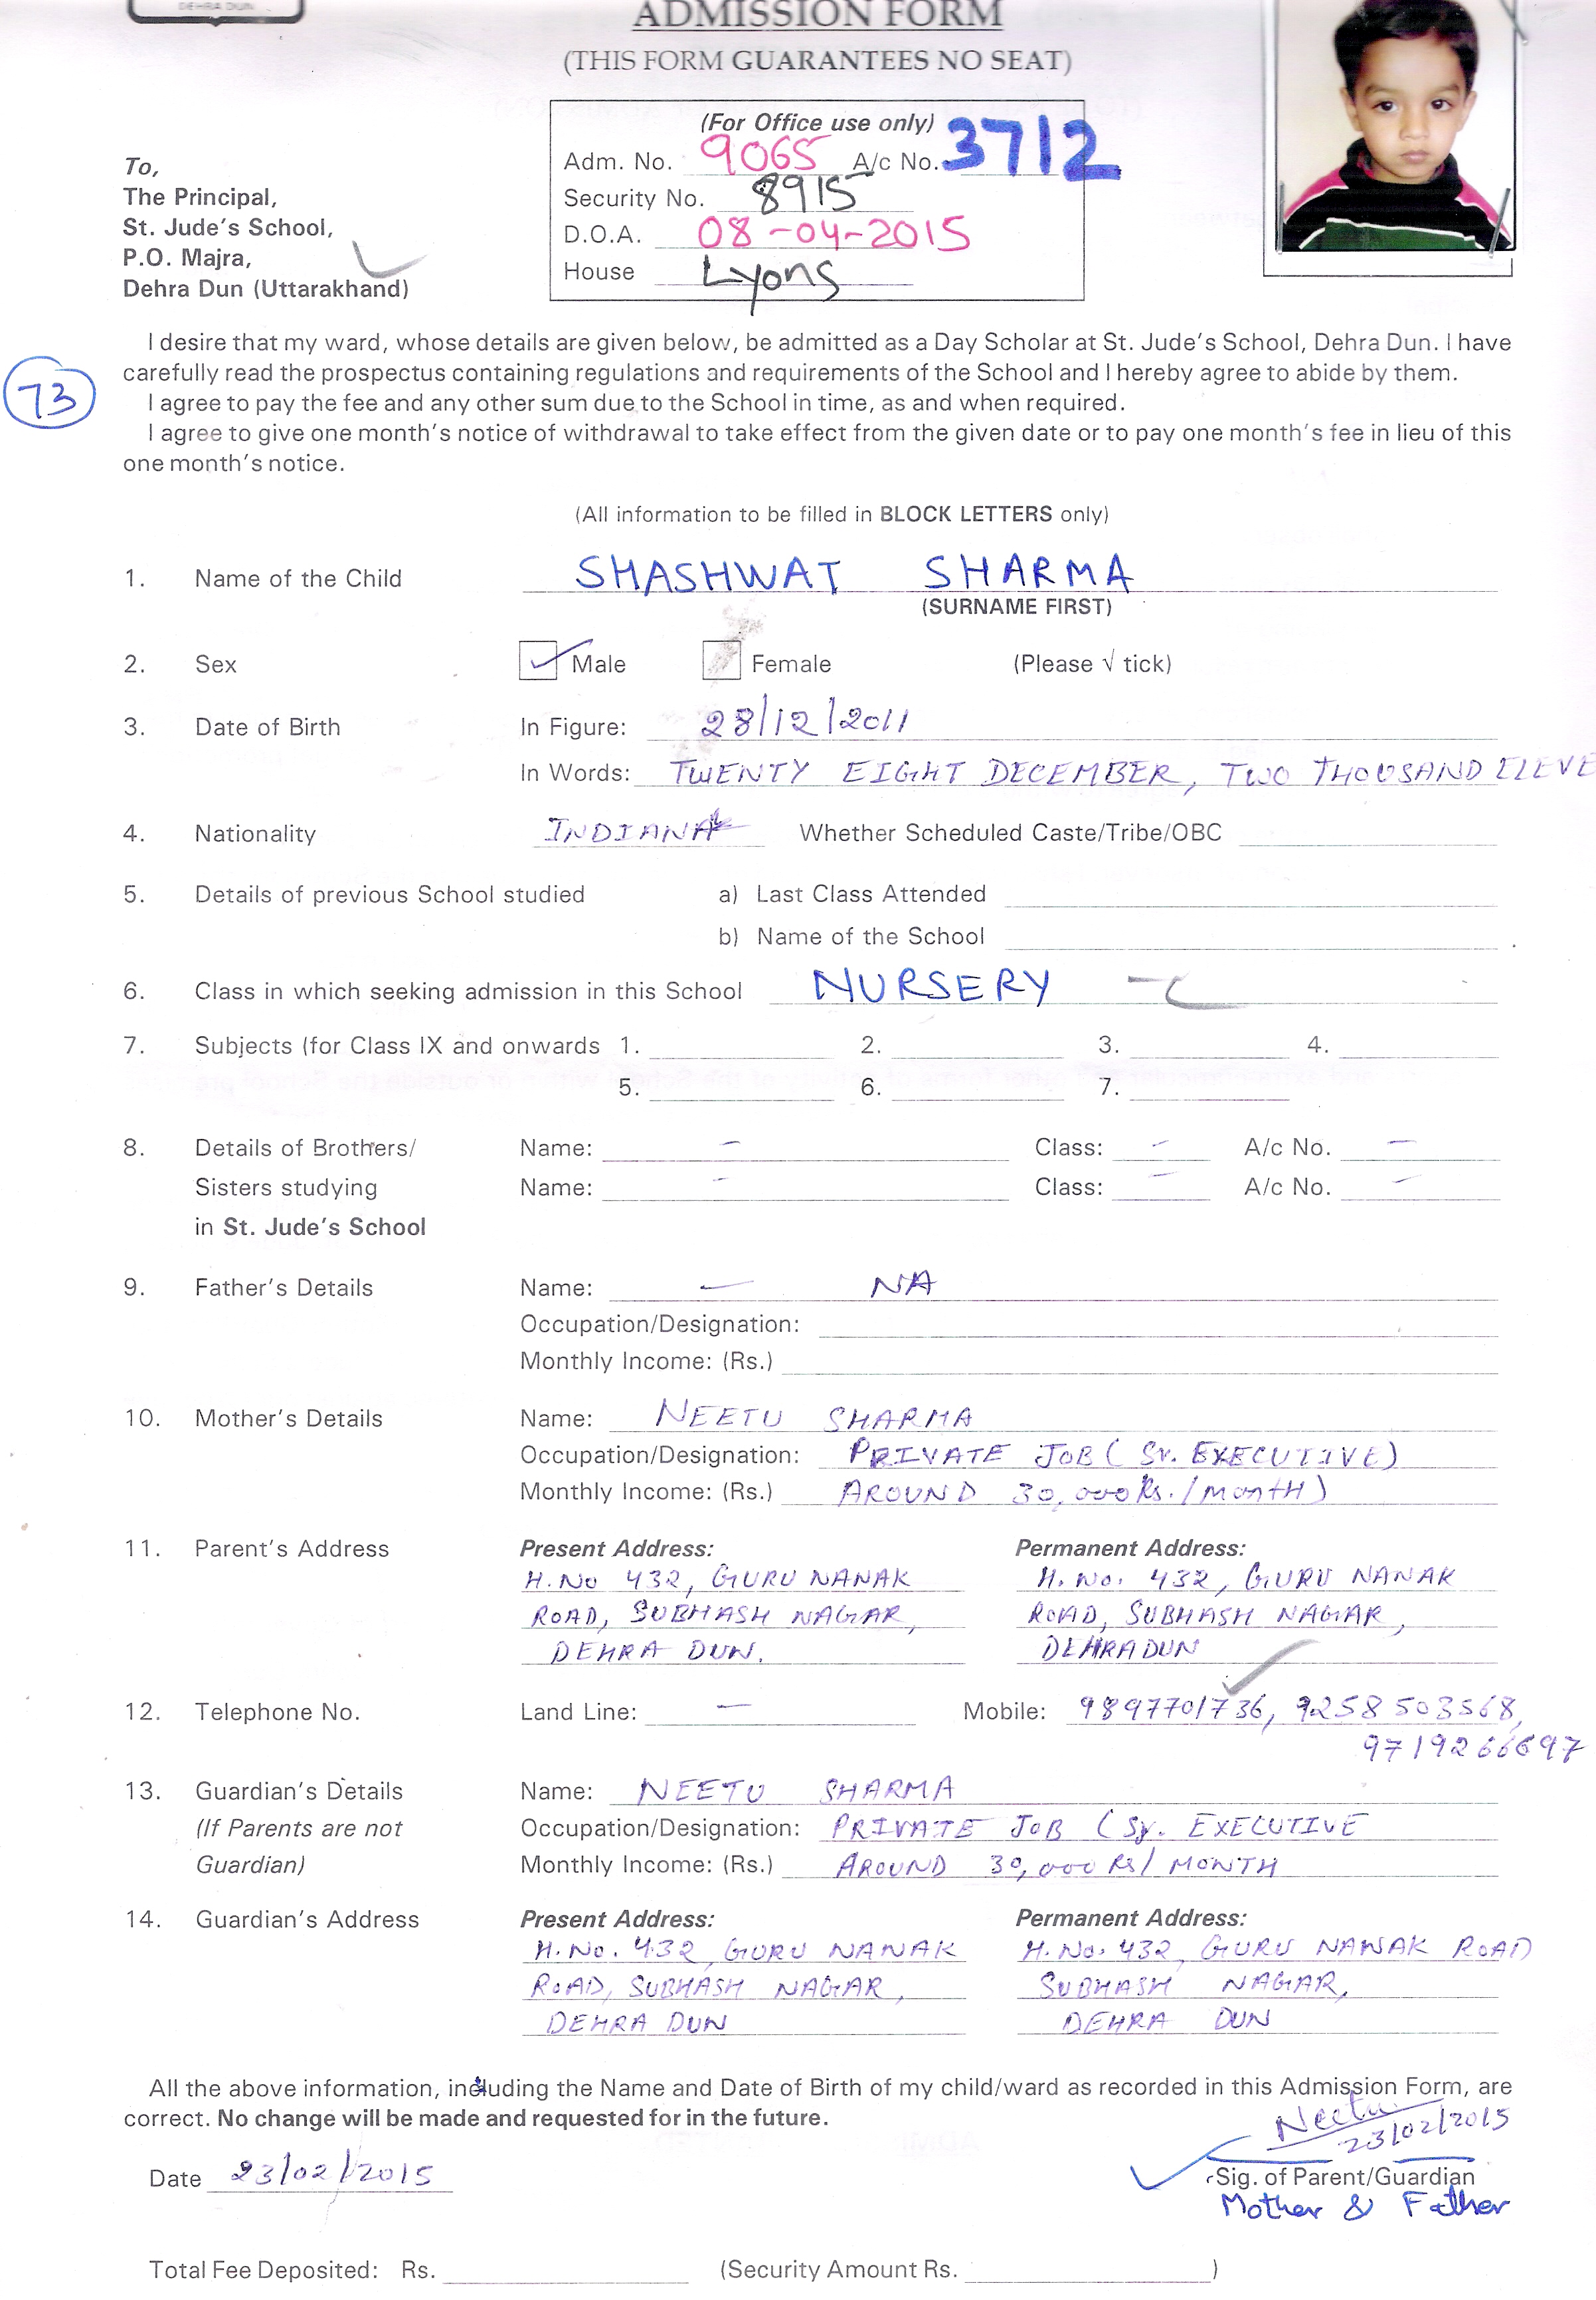 DEHRA DUN
ADMISSION FORM
(THIS FORM GUARANTEES NO SEAT)
(For Office use only)
Adm. No. 9065 A/c No. 3712
Security No. 8915
D.O.A. 08-04-2015
House Lyons
To,
The Principal,
St. Jude's School,
P.O. Majra,
Dehra Dun (Uttarakhand)
I desire that my ward, whose details are given below, be admitted as a Day Scholar at St. Jude's School, Dehra Dun. I have
carefully read the prospectus containing regulations and requirements of the School and I hereby agree to abide by them.
73
I agree to pay the fee and any other sum due to the School in time, as and when required.
I agree to give one month's notice of withdrawal to take effect from the given date or to pay one month's fee in lieu of this
one month's notice.
(All information to be filled in BLOCK LETTERS only)
1. Name of the Child SHASHWAT SHARMA
(SURNAME FIRST)
2. Sex Male Female (Please √ tick)
3. Date of Birth In Figure: 28/12/2011
In Words: TWENTY EIGHT DECEMBER, TWO THOUSAND ELEVE
4. Nationality INDIAN Whether Scheduled Caste/Tribe/OBC
5. Details of previous School studied a) Last Class Attended
b) Name of the School
6. Class in which seeking admission in this School NURSERY - C
7. Subjects (for Class IX and onwards 1. 2. 3. 4.
5. 6. 7.
8. Details of Brothers/ Name: - Class: - A/c No. -
Sisters studying Name: - Class: - A/c No. -
in St. Jude's School
9. Father's Details Name: - NA
Occupation/Designation:
Monthly Income: (Rs.)
10. Mother's Details Name: NEETU SHARMA
Occupation/Designation: PRIVATE JOB (Sr. EXECUTIVE)
Monthly Income: (Rs.) AROUND 30,000 Rs. /MONTH)
11. Parent's Address Present Address: Permanent Address:
H.No 432, GURU NANAK H. No. 432, GURU NANAK
ROAD, SUBHASH NAGAR, ROAD, SUBHASH NAGAR,
DEHRA DUN. DEHRADUN
12. Telephone No. Land Line: - Mobile: 9897701736, 9258503568,
9719266697
13. Guardian's Details Name: NEETU SHARMA
(If Parents are not Occupation/Designation: PRIVATE JOB (Sr. EXECUTIVE
Guardian) Monthly Income: (Rs.) AROUND 30,000 Rs/ MONTH
14. Guardian's Address Present Address: Permanent Address:
H.No. 432, GURU NANAK H.No. 432, GURU NANAK ROAD
ROAD, SUBHASH NAGAR, SUBHASH NAGAR,
DEHRA DUN DEHRA DUN
All the above information, including the Name and Date of Birth of my child/ward as recorded in this Admission Form, are
correct. No change will be made and requested for in the future.
Neetu
23/02/2015
Date 23/02/2015 Sig. of Parent/Guardian
Mother & Father
Total Fee Deposited: Rs. (Security Amount Rs. )